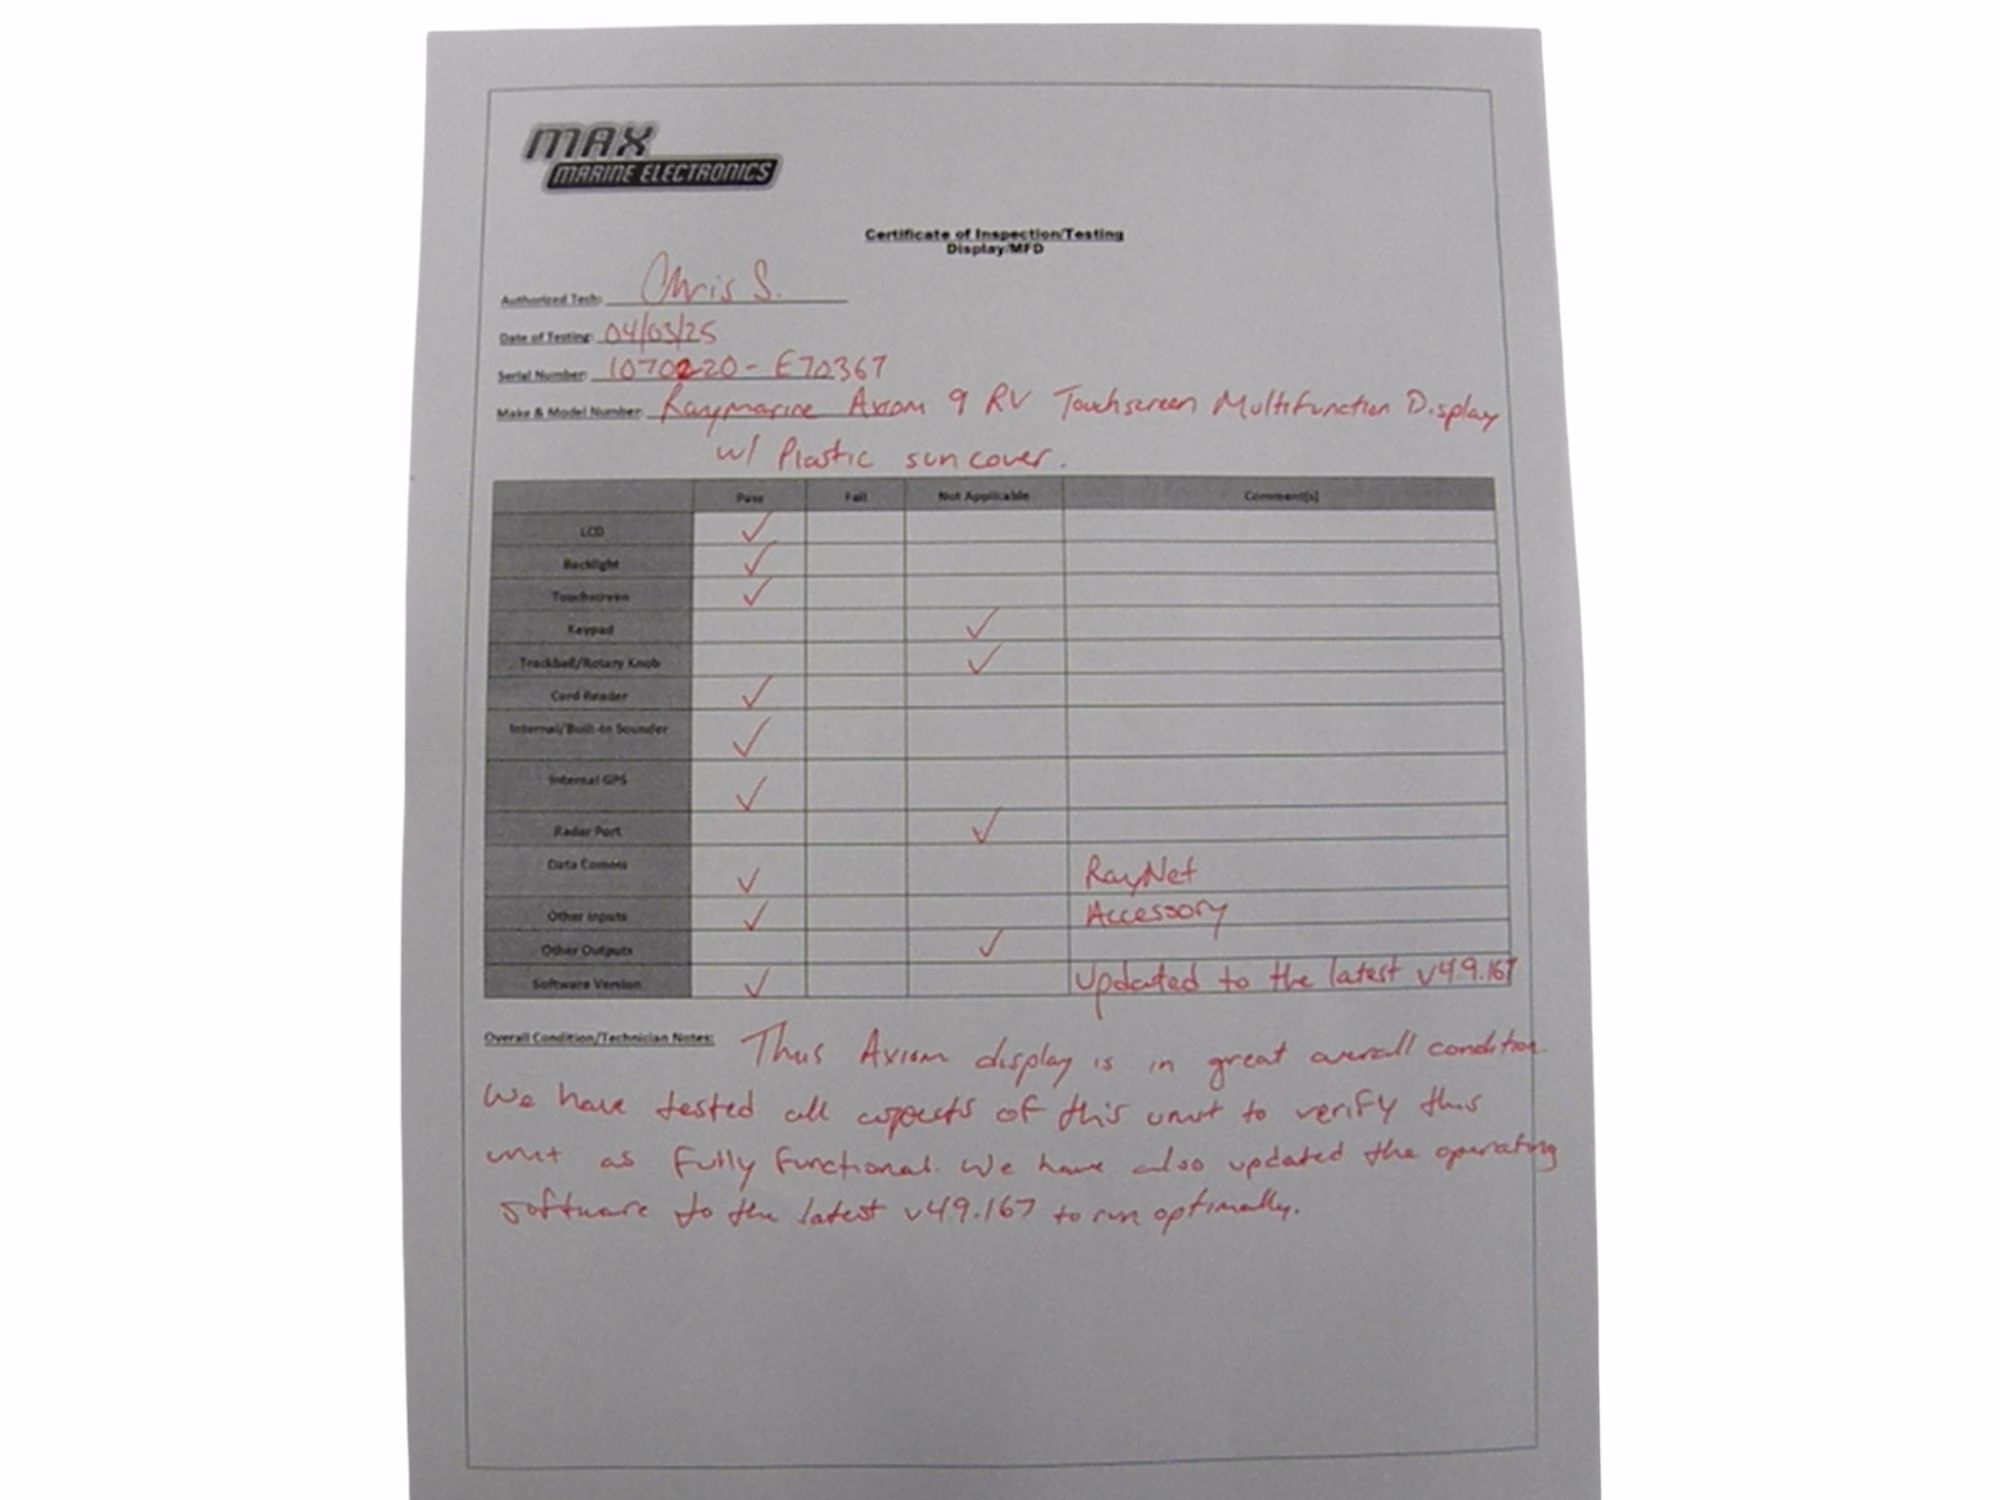 MAX
MARINE ELECTRONICS
Certificate of Inspection/Testing
Display/MFD
Authorized Tech: Chris S.
Date of Testing: 04/03/25
Serial Number: 1070220-E70367
Make & Model Number: Raymarine Axiom 9 RV Touchscreen Multifunction Display
w/ Plastic sun cover.
Pass Fail Not Applicable Comment(s)
LCD ✓
Backlight ✓
Touchscreen ✓
Keypad ✓
Trackball/Rotary Knob ✓
Card Reader ✓
Internal/Built-in Sounder ✓
Internal GPS ✓
Radar Port ✓
Data Comms ✓ RayNet
Other Inputs ✓ Accessory
Other Outputs ✓
Software Version ✓ Updated to the latest v49.167
Overall Condition/Technician Notes: This Axiom display is in great overall condition.
We have tested all aspects of this unit to verify this
unit as fully functional. We have also updated the operating
software to the latest v49.167 to run optimally.